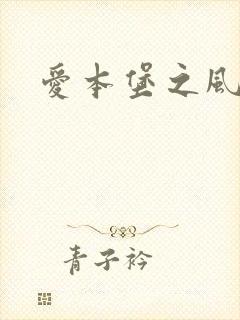 愛本堡之風
青子衿